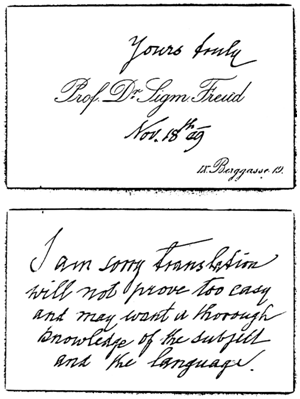 Yours truly
Prof. Dr Sigm. Freud
Nov. 18th 29
IX. Berggasse 19.
I am sorry translation
will not prove too easy
and may want a thorough
knowledge of the subject
and the language.